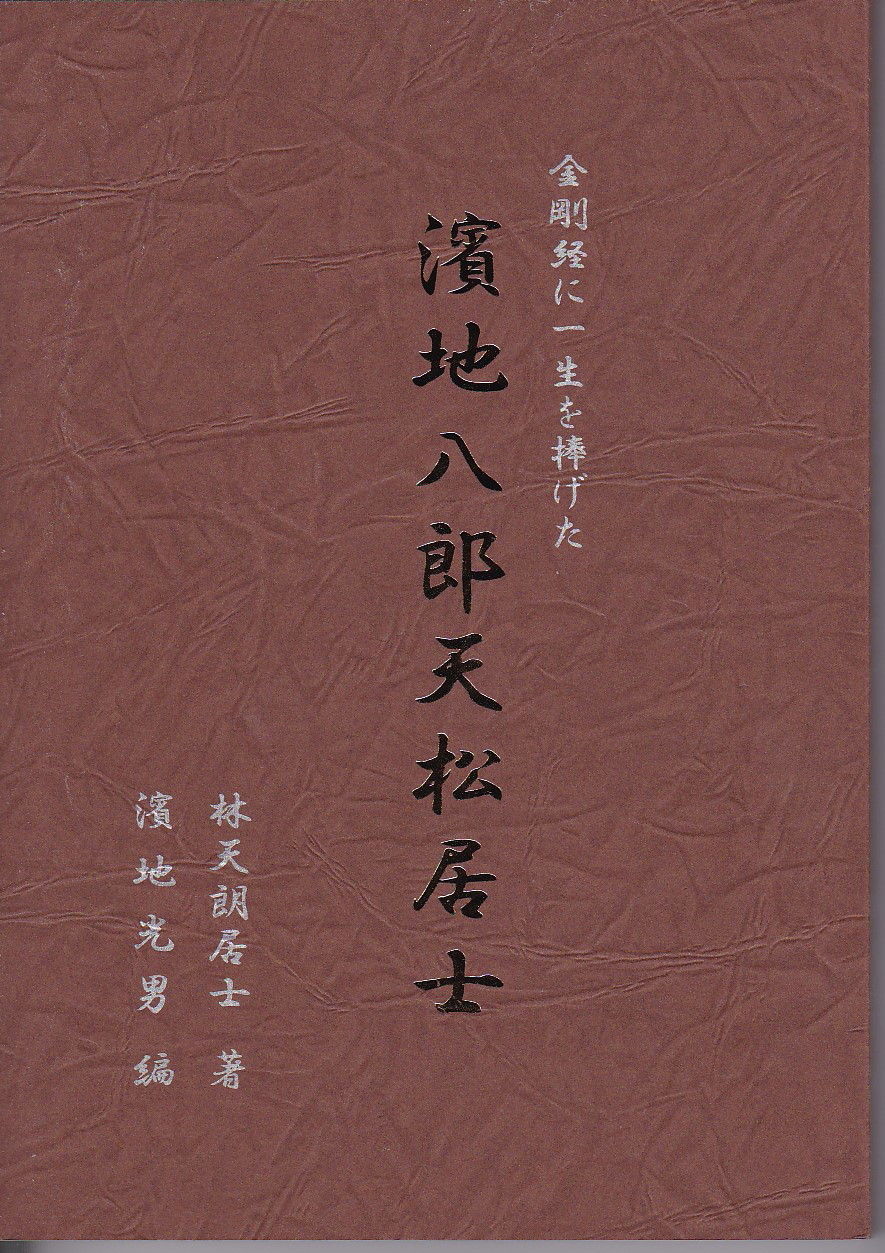 金剛経に一生を捧げた
濱地八郎天松居士
林天朗居士 著
濱地光男 編